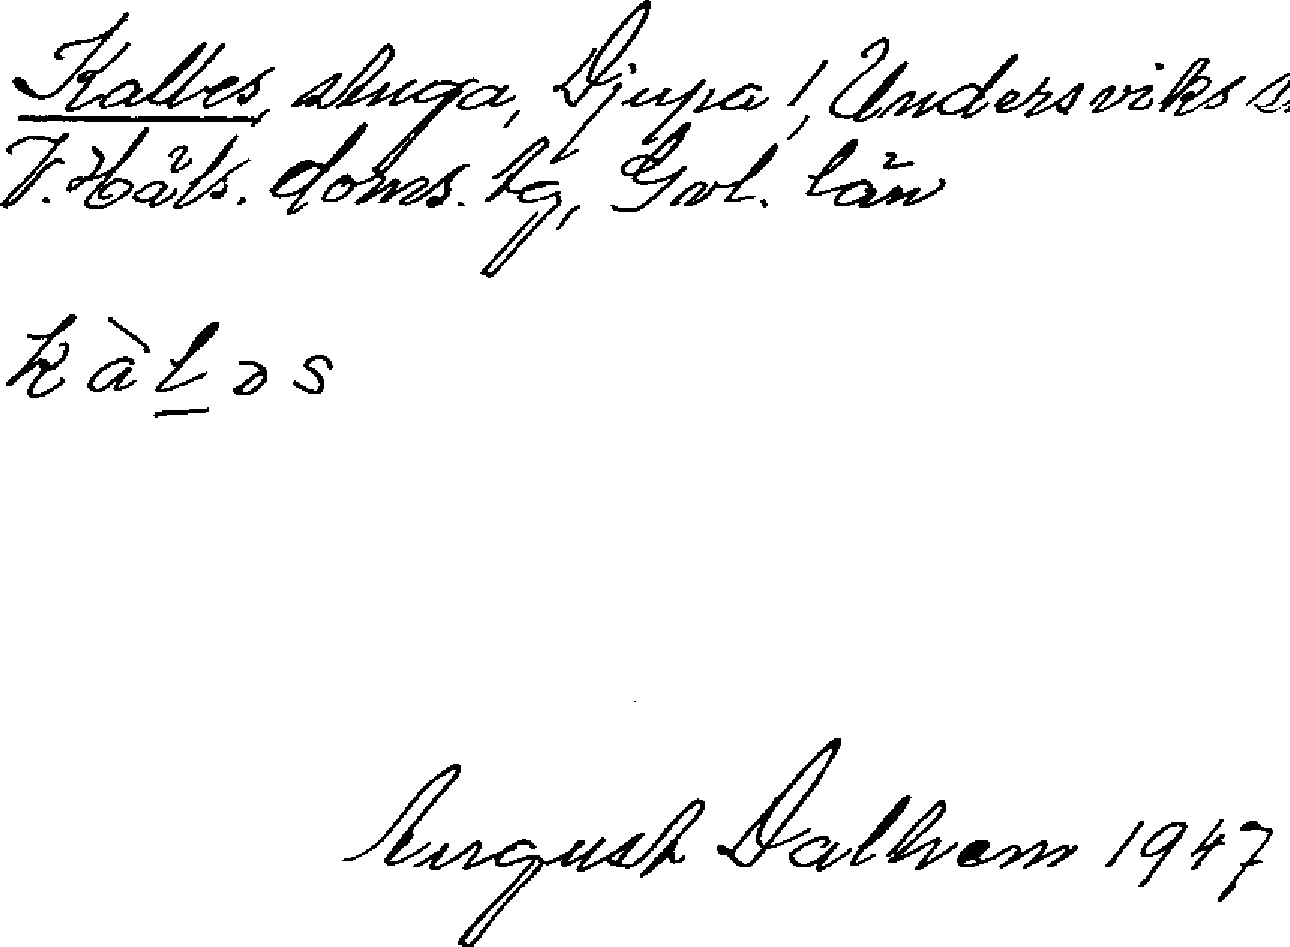 Kalles, stuga, Djupa 1, Undersviks s
V. Häls. doms. tg, Gvl. län
kàlɔs
August Dalhem 1947